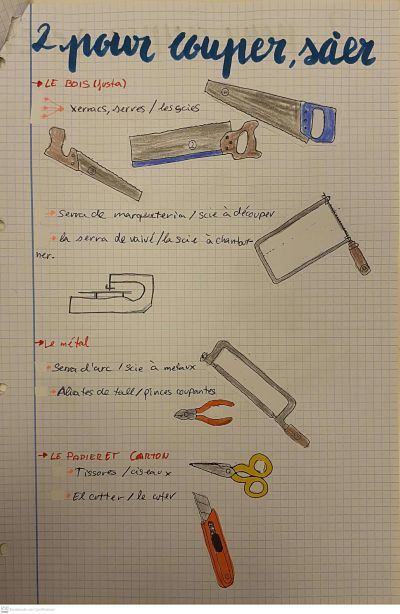 2. pour couper, săer
→ LE BOIS (fusta)
xerracs, serres / les scies
Serra de marqueteria / scie à découper
la serra de vaivé / la scie à chantour
ner.
→ Le métal
Serra d'arc / scie à metaux
Alicates de tall / pinces coupantes
→ LE PAPIER ET CARTON
Tissores / ciseaux
El cutter / le cuter